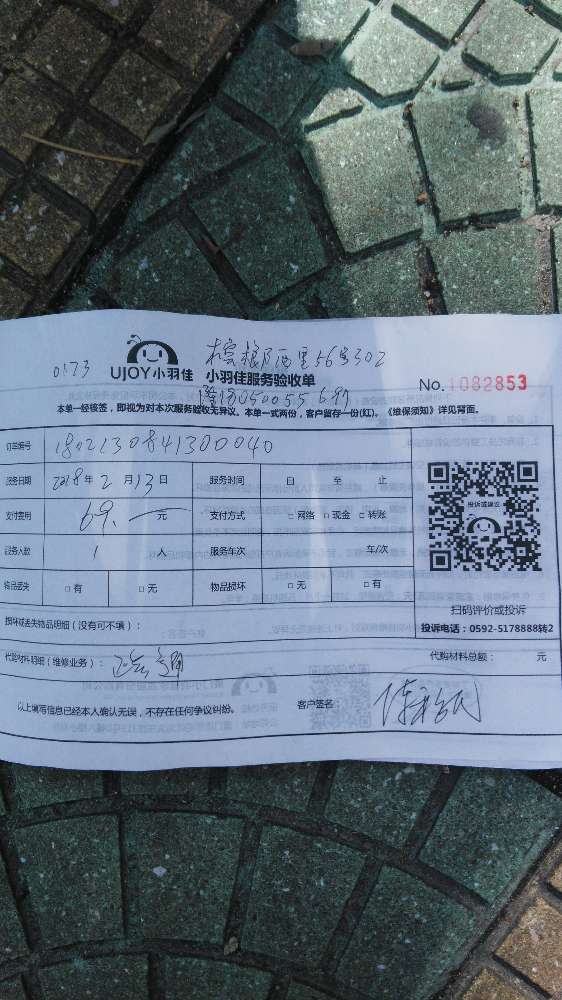 0173
UJOY小羽佳
槟榔西里56号302
小羽佳服务验收单
No. 1082853
本单一经核签，即视为对本次服务验收无异议。本单一式两份，客户留存一份(红)。《维保须知》详见背面。
订单编号 1802130841300040
服务日期 2018年2月13日 服务时间 自 至 止
支付费用 69.— 元 支付方式 □网络 □现金 □转账
服务人数 1 人 服务车次 车/次
物品丢失 □有 □无 物品损坏 □无 □有
投诉或建议
扫码评价或投诉
投诉电话：0592-5178888转2
损坏或丢失物品明细（没有可不填）：
代购材料明细（维修业务）： 代购材料总额： 元
以上填写信息已经本人确认无误，不存在任何争议纠纷。 客户签名